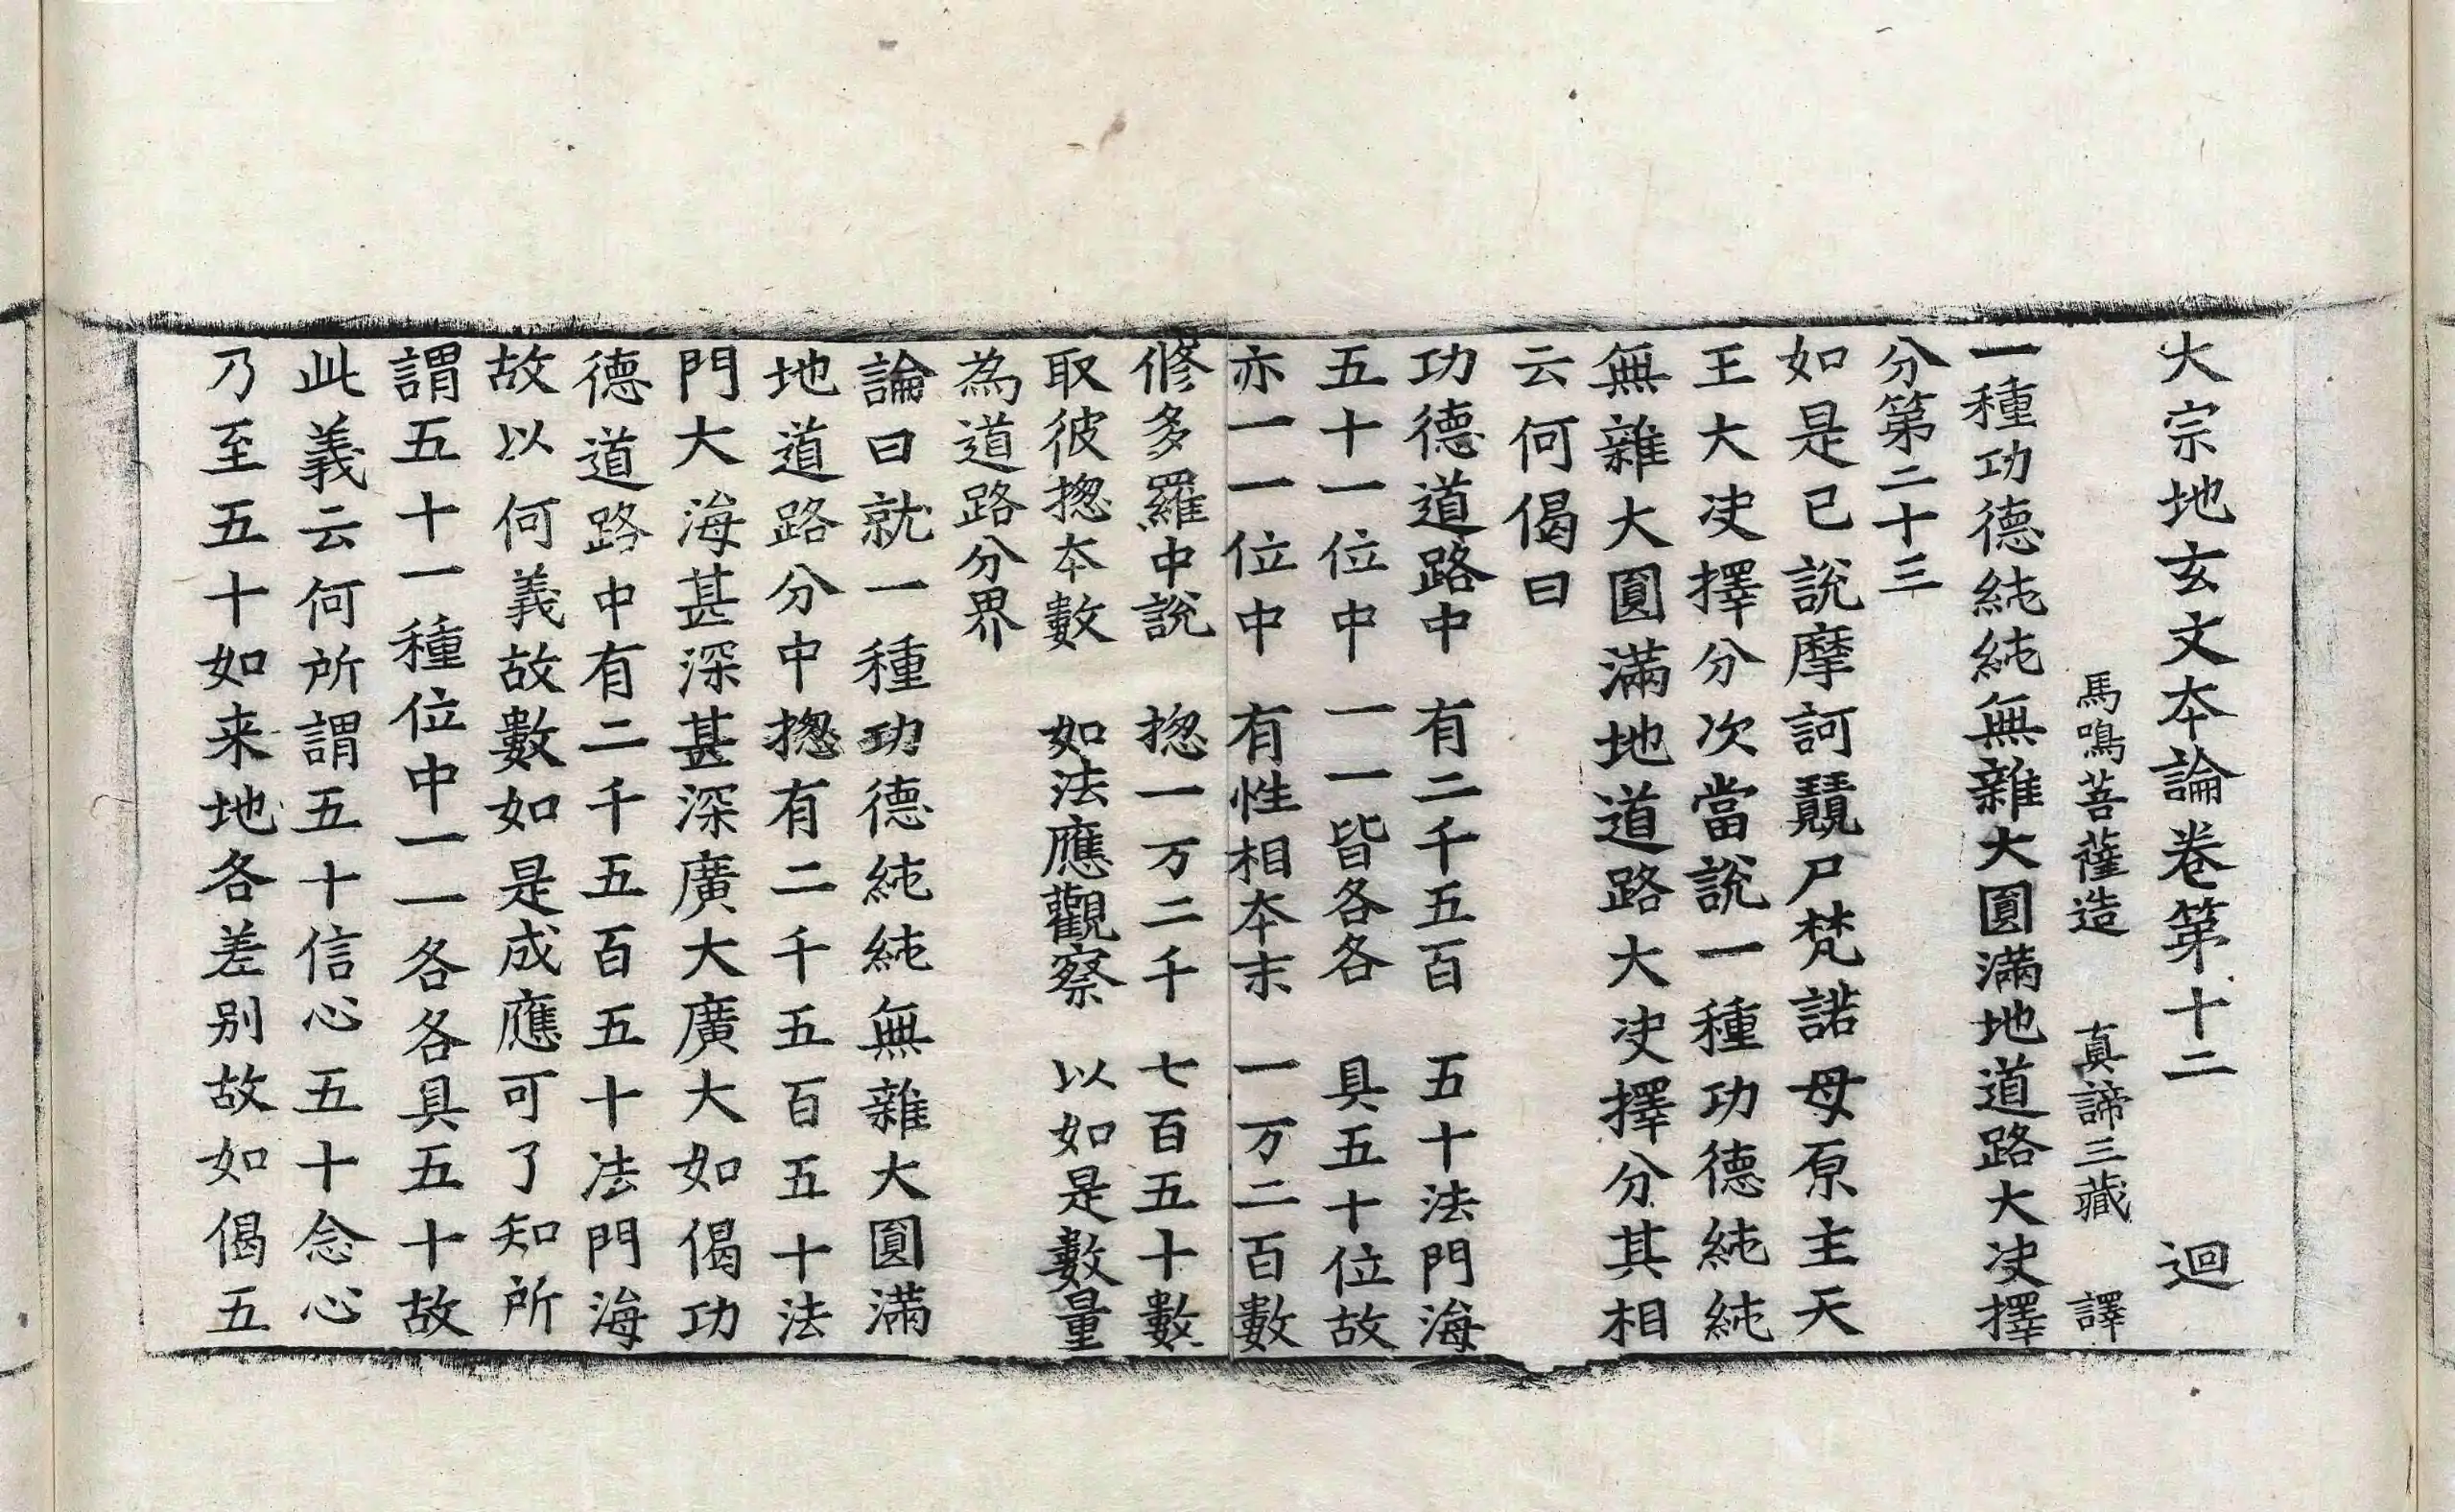 大宗地玄文夲論卷第十二　迴
馬鳴菩薩造　真諦三藏　譯
一種功德純純無雜大圓滿地道路大決擇
分第二十三
如是已說摩訶覞尸梵諾母原主天
王大决擇分次當說一種功德純純
無雜大圓滿地道路大决擇分其相
云何偈曰
功德道路中　有二千五百　五十法門海
五十一位中　一一皆各各　具五十位故
亦一一位中　有性相夲末　一万二百數
修多羅中說　揔一万二千　七百五十數
取彼揔夲數　如法應觀察　以如是數量
為道路分界
論曰就一種功德純純無雜大圓滿
地道路分中揔有二千五百五十法
門大海甚深甚深廣大廣大如偈功
德道路中有二千五百五十法門海
故以何義故數如是成應可了知所
謂五十一種位中一一各各具五十故
此義云何所謂五十信心五十念心
乃至五十如来地各差别故如偈五